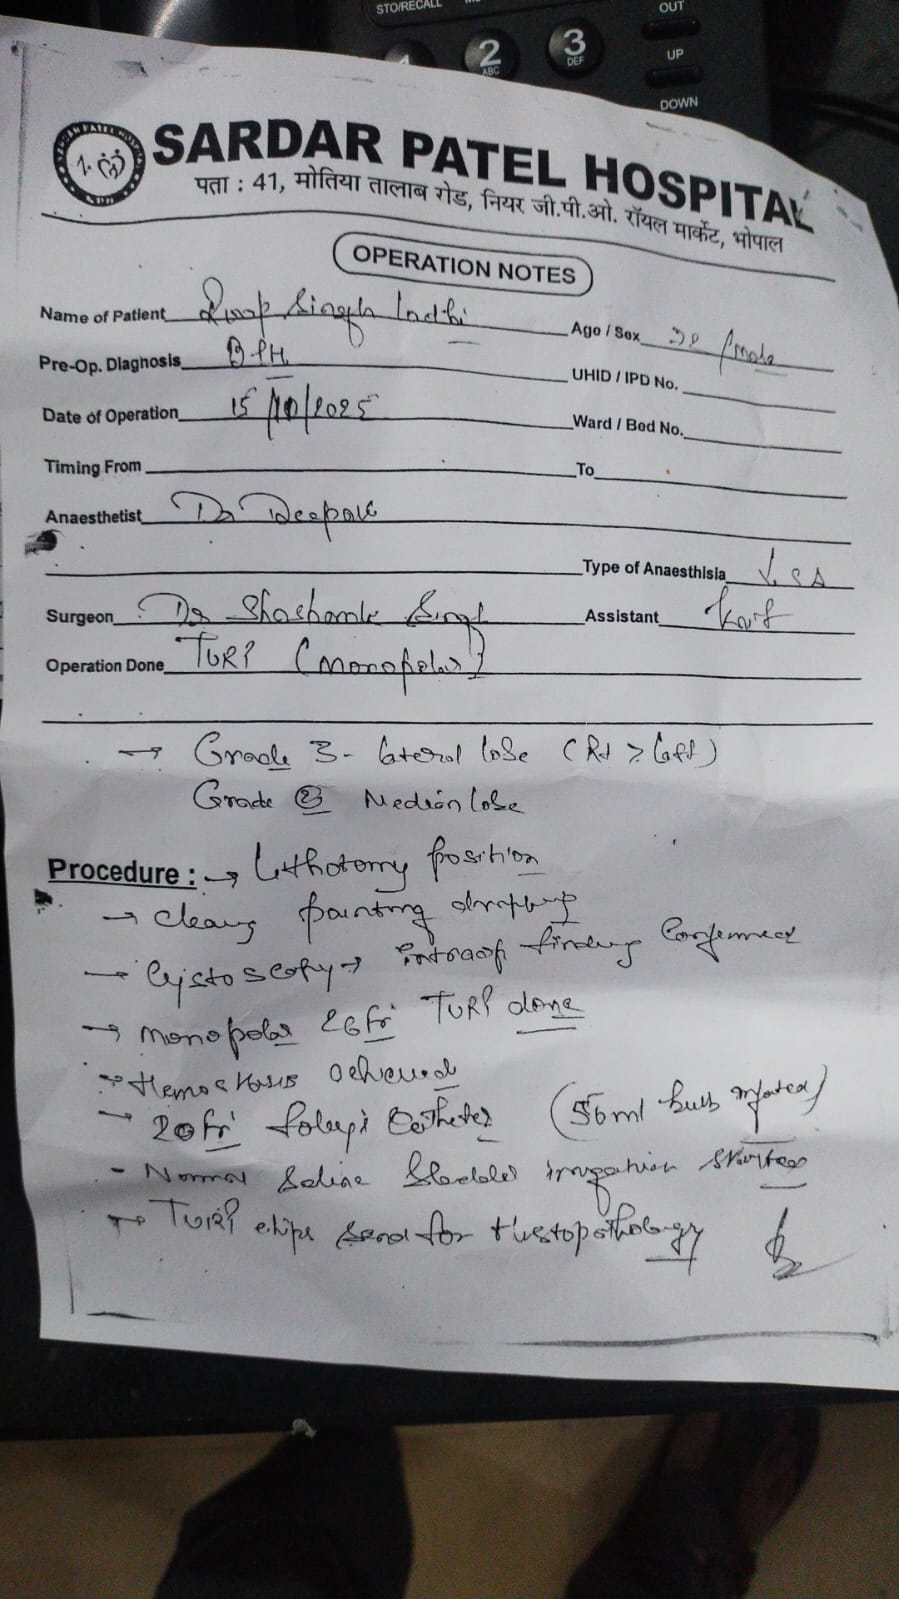 STO/RECALL
OUT
2
ABC
3
DEF
UP
DOWN
SARDAR PATEL HOSPITAL
पता : 41, मोतिया तालाब रोड, नियर जी.पी.ओ. रॉयल मार्केट, भोपाल
OPERATION NOTES
Name of Patient Singh Age / Sex /male
Pre-Op. Diagnosis BPH. UHID / IPD No.
Date of Operation 15/10/2025 Ward / Bed No.
Timing From To
Anaesthetist Dr Deepak
Type of Anaesthisia
Surgeon Dr Shashank Singh Assistant
Operation Done TURP (monopolar)
→ Grade 3- lateral lobe (Rt > left)
Grade Median lobe
Procedure : → Lithotomy position
→ cleang painting draping
→ Cystoscopy → intraop findings Confirmed
→ monopolar 26 fr TURP done
→ Hemostasis achieved
→ 20 fr foley's Catheter (50ml bulb inflated)
- Normal Saline Bladder irrigation started
→ TURP chips send for Histopathology